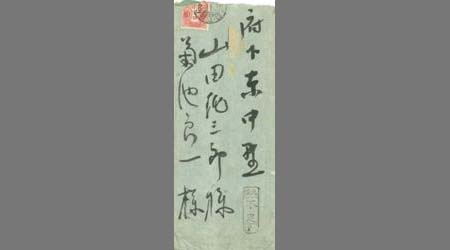 府下東中野
山田純三郎様
菊池良一様